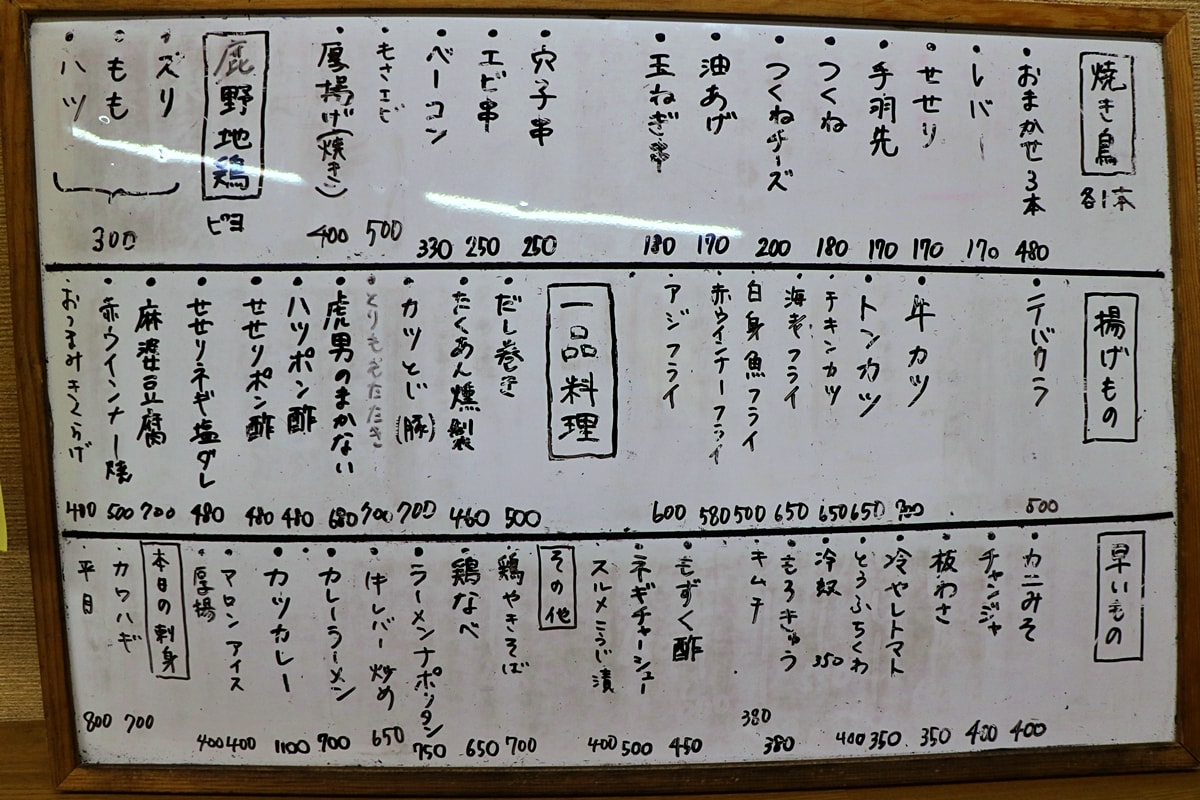 焼き鳥
各1本
おまかせ3本 480
レバー 170
せせり 170
手羽先 170
つくね 180
つくねチーズ 200
油あげ 170
玉ねぎ串 180
穴子串 250
エビ串 250
ベーコン 330
もさエビ 500
厚揚げ(焼き) 400
鹿野地鶏
ピヨ
ズリ
もも
ハツ
300
揚げもの
テバカラ 500
牛カツ 700
トンカツ 650
チキンカツ 650
海老フライ 650
白身魚フライ 500
赤ウインナーフライ 580
アジフライ 600
一品料理
だし巻き 500
たくあん燻製 460
カツとじ(豚) 700
とりももたたき 700
虎男のまかない 680
ハツポン酢 480
せせりポン酢 480
せせりネギ塩ダレ 480
麻婆豆腐 700
赤ウインナー焼 500
おつまみきくらげ 480
早いもの
カニみそ 400
チャンジャ 400
板わさ 350
冷やしトマト 350
とうふちくわ 400
冷奴 350
もろきゅう 380
キムチ 380
もずく酢 450
ネギチャーシュー 500
スルメこうじ漬 400
その他
鶏やきそば 700
鶏なべ 650
ラーメンナポリタン 750
牛レバー炒め 650
カレーラーメン 900
カツカレー 1100
マロンアイス 400
厚揚 400
本日の刺身
カワハギ 700
平目 800